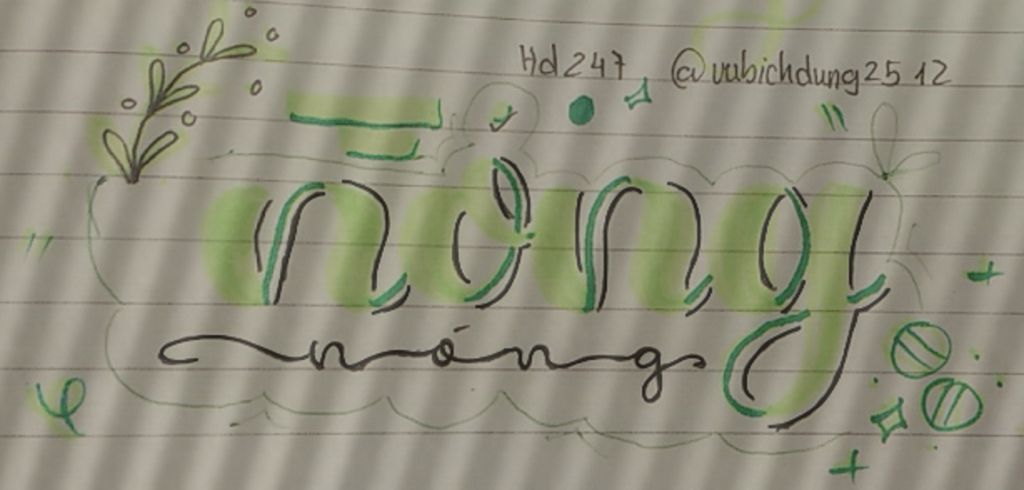 Hd 247 @vubichdung2512
nóng
nóng